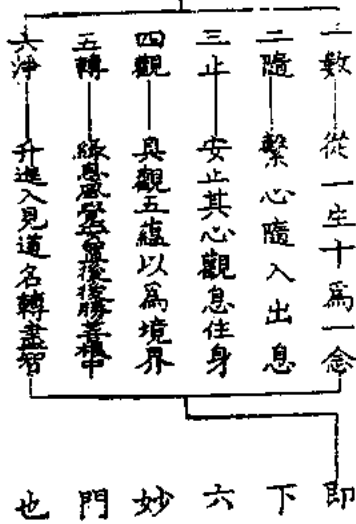 一數 從一至十爲一念
二隨 繫心隨入出息
三止 安止其心觀息住身
四觀 具觀五蘊以爲境界
五轉 緣息風覺安置後後勝善根中
六淨 升進入見道名轉盡智
即下六妙門也